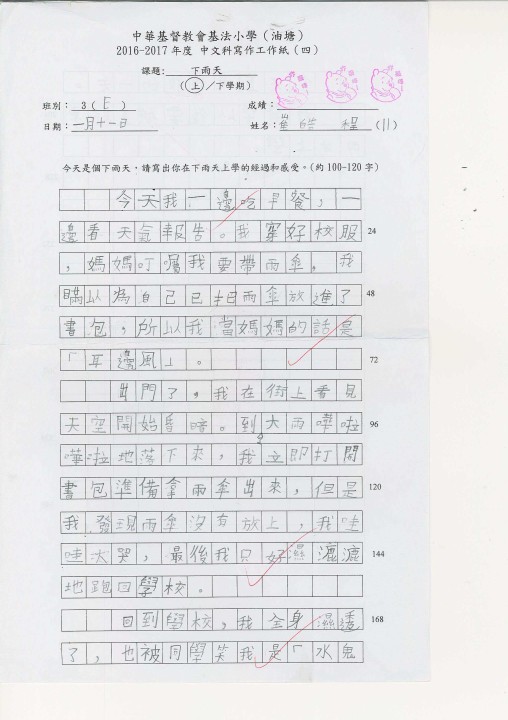 中華基督教會基法小學（油塘）
2016-2017 年度 中文科寫作工作紙（四）
課題: 下雨天
（上／下學期）
班別: 3（E） 成績:
日期: 一月十一日 姓名: 崔皓程（11）
今天是個下雨天，請寫出你在下雨天上學的經過和感受。(約 100-120 字)
今天我一邊吃早餐，一
邊看天氣報告。我穿好校服 24
，媽媽叮囑我要帶雨傘，我
瞞以為自己已把雨傘放進了 48
書包，所以我當媽媽的話是
「耳邊風」。 72
出門了，我在街上看見
天空開始昏暗。到大雨嘩啦 96
嘩啦地落下來，我立即打開
書包準備拿雨傘出來，但是 120
我發現雨傘沒有放上，我哇
哇大哭，最後我只好濕漉漉 144
地跑回學校。
回到學校，我全身濕透 168
了，也被同學笑我是「水鬼